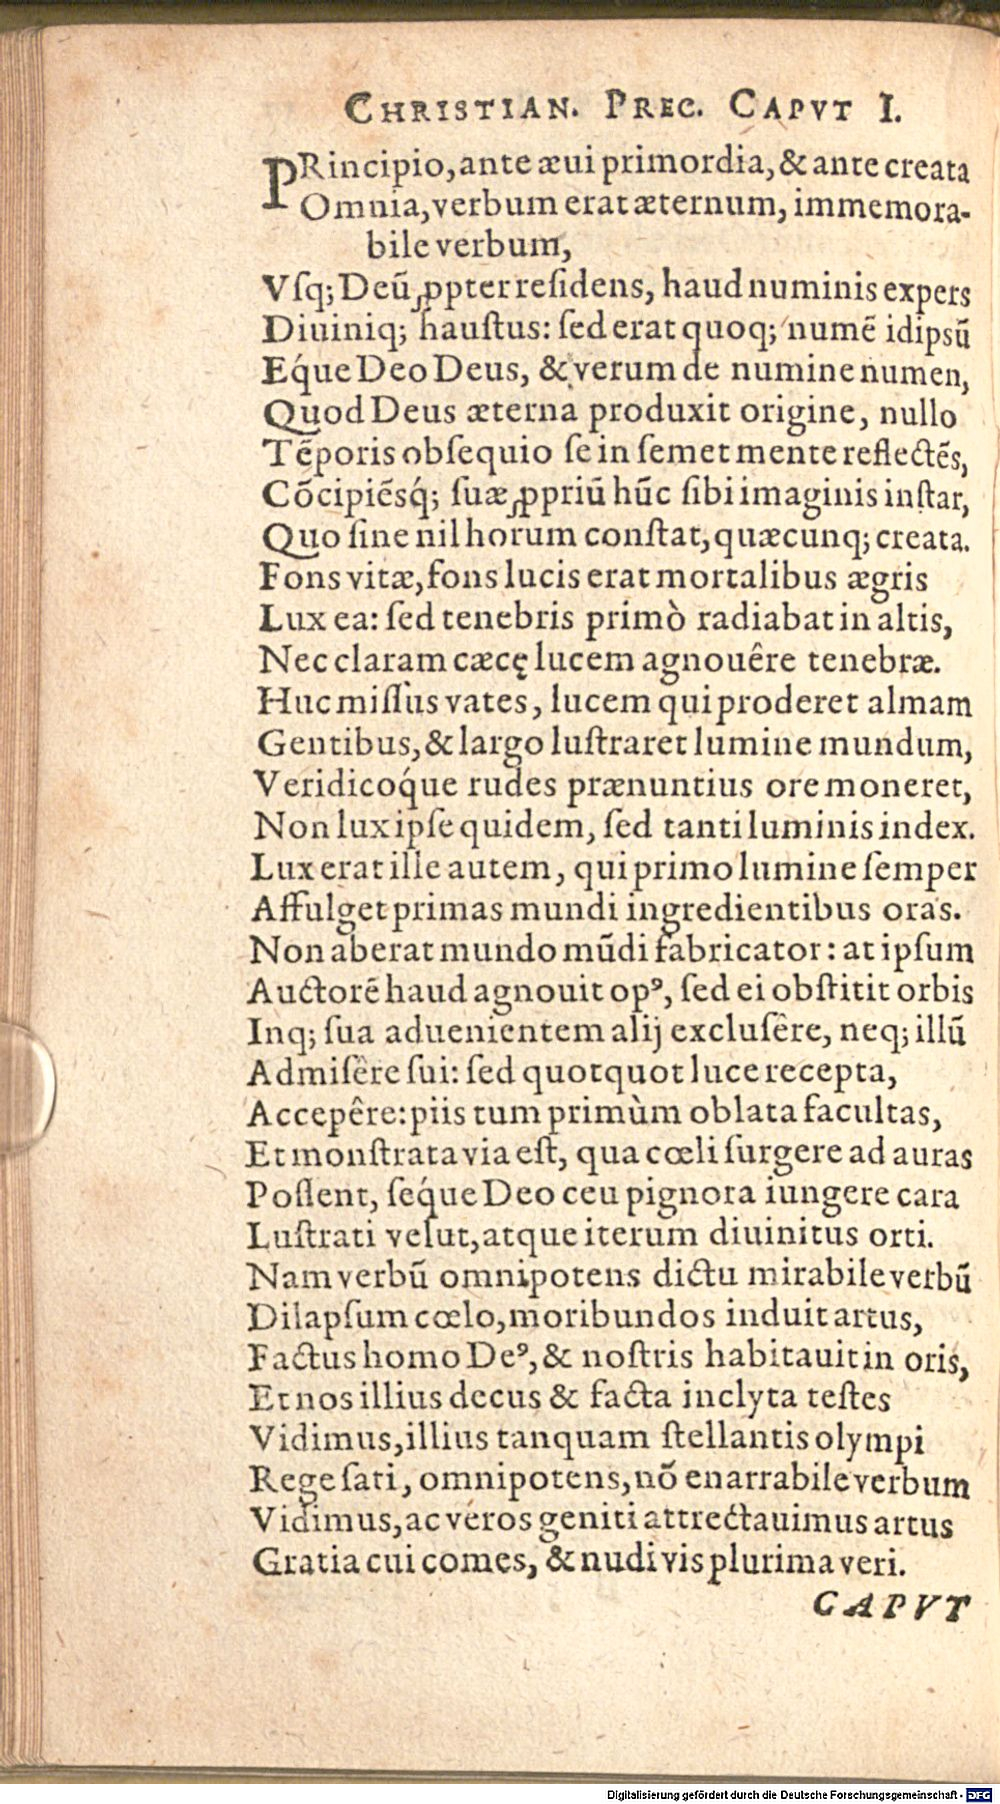 CHRISTIAN. PREC. CAPVT I.
PRincipio, ante æui primordia, & ante creata
Omnia, verbum erat æternum, immemora-
bile verbum,
Vſq; Deũ ꝓpter reſidens, haud numinis expers
Diuiniq; hauſtus: ſed erat quoq; numẽ idipsũ
Eq́ue Deo Deus, & verum de numine numen,
Quod Deus æterna produxit origine, nullo
Tẽporis obſequio ſe in ſemet mente reflectẽs,
Cõcipiẽsq́; ſuæ ꝓpriũ hũc ſibi imaginis inſtar,
Quo ſine nil horum conſtat, quæcunq; creata.
Fons vitæ, fons lucis erat mortalibus ægris
Lux ea: ſed tenebris primò radiabat in altis,
Nec claram cæcę lucem agnouêre tenebræ.
Huc miſſus vates, lucem qui proderet almam
Gentibus, & largo luſtraret lumine mundum,
Veridicoq́ue rudes prænuntius ore moneret,
Non lux ipſe quidem, ſed tanti luminis index.
Lux erat ille autem, qui primo lumine ſemper
Affulget primas mundi ingredientibus oras.
Non aberat mundo mũdi fabricator: at ipſum
Auctorẽ haud agnouit opꝰ, ſed ei obſtitit orbis
Inq; ſua aduenientem alij excluſêre, neq; illũ
Admiſêre ſui: ſed quotquot luce recepta,
Accepêre: piis tum primùm oblata facultas,
Et monſtrata via eſt, qua cœli ſurgere ad auras
Poſſent, ſeq́ue Deo ceu pignora iungere cara
Luſtrati velut, atque iterum diuinitus orti.
Nam verbũ omnipotens dictu mirabile verbũ
Dilapſum cœlo, moribundos induit artus,
Factus homo Deꝰ, & noſtris habitauit in oris,
Et nos illius decus & facta inclyta teſtes
Vidimus, illius tanquam ſtellantis olympi
Rege ſati, omnipotens, nõ enarrabile verbum
Vidimus, ac veros geniti attrectauimus artus
Gratia cui comes, & nudi vis plurima veri.
CAPVT
Digitalisierung gefördert durch die Deutsche Forschungsgemeinschaft - DFG